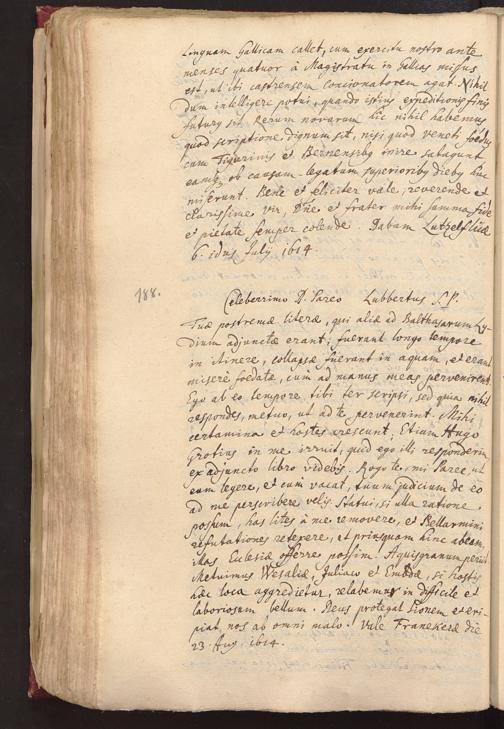 linguam Gallicam callet, cum exercitu nostro ante
menses quatuor à Magistratu in Gallias missus
est, ut ibi castrensem concionatorem agat. Nihil
dum intelligere potui, quando istius expeditionis finis
futurus sit. Rerum novarum hic nihil habemus
quod scriptione dignum sit, nisi quod Veneti foedus
cum Tigurinis et Bernensibq inire satagunt
eamq ob causam legatum superioribq diebq huc
miserunt. Bene et feliciter vale, reverende et
clarissime vir, Dne et frater mihi summa fide
et pietate semper colende. Dabam Lutzelflüae
6. idus Julij 1614.
188.
Celeberrimo D. Pareo Lubbertus S.P.
Tuae postremae literae, quae aliae ad Balthasarum Ly
dium adjunctae erant; fuerant longo tempore
in itinere, collapsae fuerant in aquam, et erant
miserè foedatae, cum ad manus meas pervenirent
Ego ab eo tempore tibi ter scripsi, sed quia nihil
respondes, metuo, ut ad te pervenerint. Mihi
certamina et hostes crescunt; Etiam Hugo
Grotius in me irruit, quid ego illi responderim
ex adjuncto libro videbis. Rogo te, mi Paree, ut
eum legere, et cum vacat, tuum judicium de eo
ad me perscribere velis. Statui, si ulla ratione
possum, has lites à me removere, et Bellarmini
refutationes retexere, ut priusquam hinc abeam,
illas Ecclesiae offerre possim. Aquisgranum periit
Metuimus Wesaliae, Juliaco et Embdae, si hostis
haec loca aggredietur, relabemur in difficile et
laboriosum bellum. Deus protegat Sionem et eri-
piat nos ab omni malo. Vale Franekerae die
23. Aug. 1614.